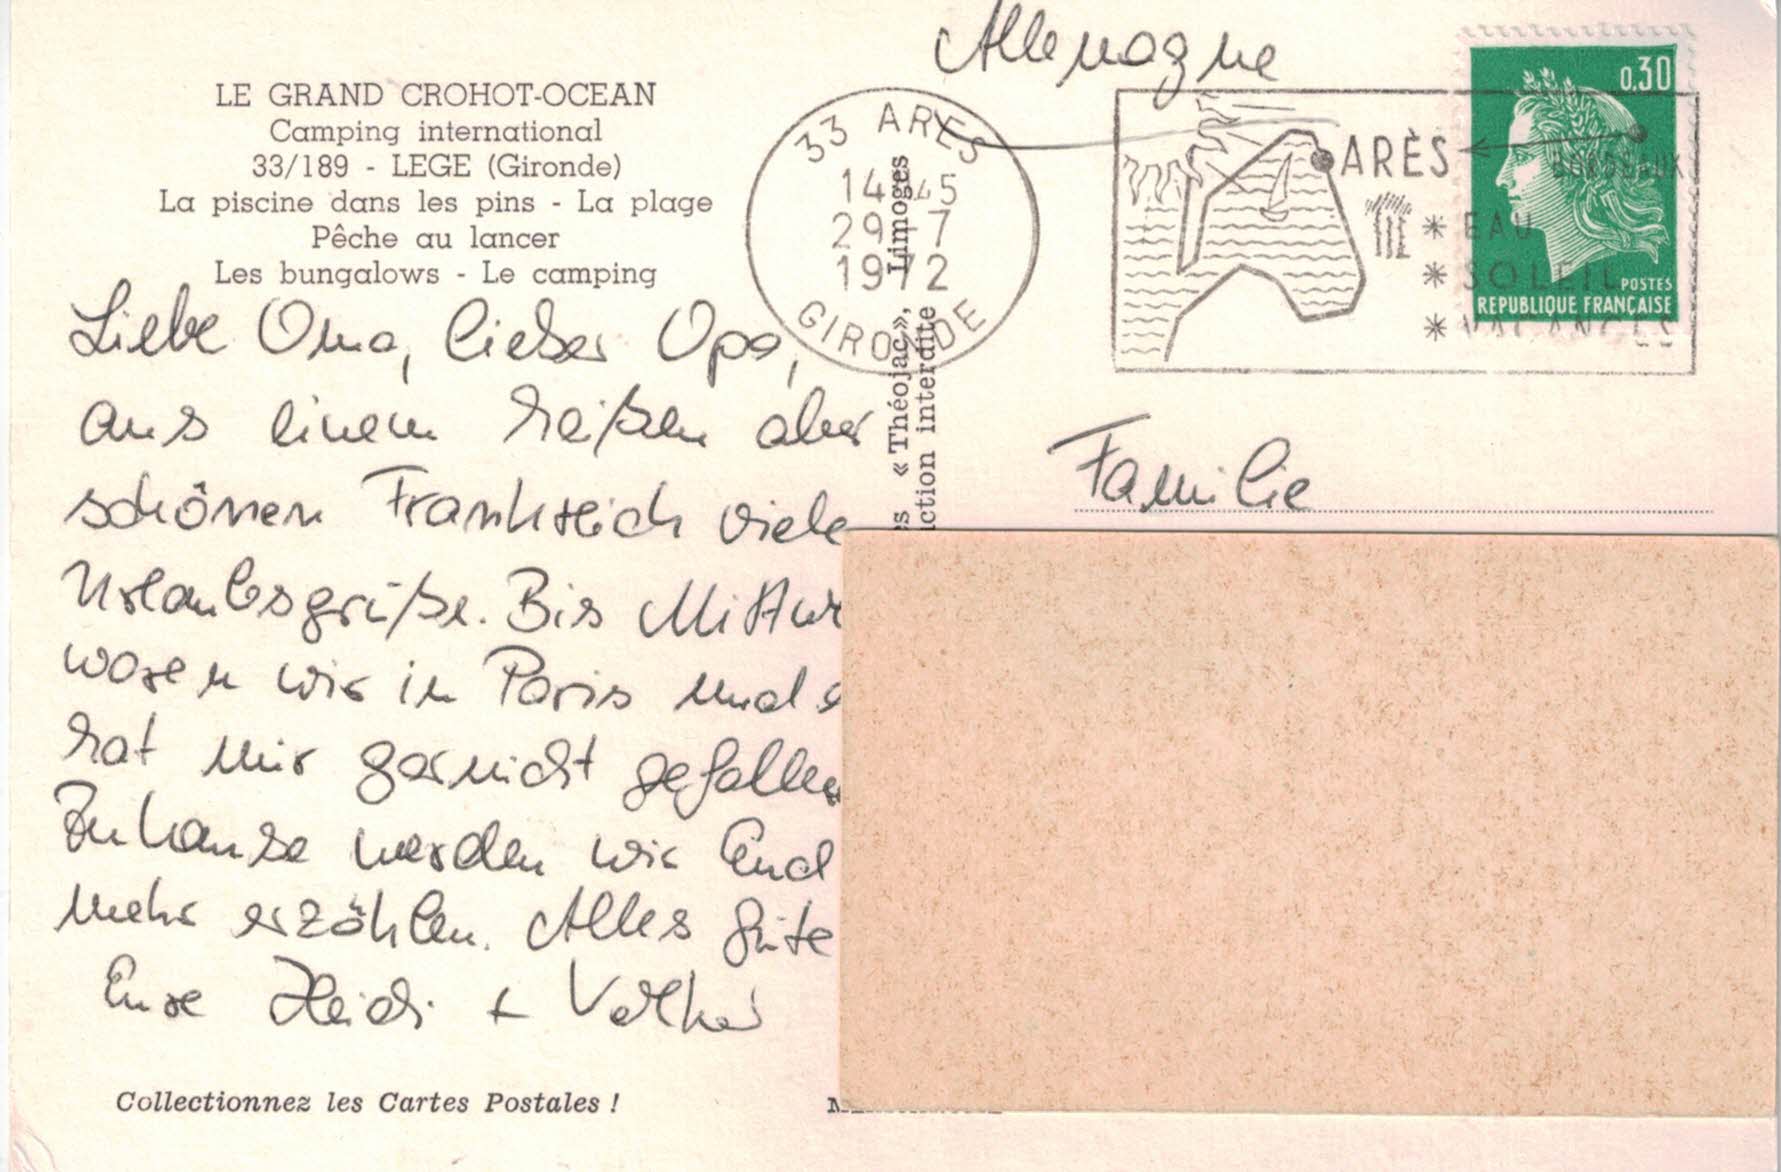 Allemagne
LE GRAND CROHOT-OCEAN
Camping international
33/189 - LEGE (Gironde)
La piscine dans les pins - La plage
Pêche au lancer
Les bungalows - Le camping
33 ARES
14 45
29 - 7
1972
GIRONDE
ARÈS
BORDEAUX
* EAU
* SOLEIL
* VACANCES
0,30
POSTES
REPUBLIQUE FRANÇAISE
« Théojac », Limoges
interdite
Liebe Oma, lieber Opa,
aus einem heißen aber
schönen Frankreich viele
Urlaubsgrüße. Bis
waren wir in Paris und
hat mir garnicht gefallen
Zuhause werden wir Euch
mehr erzählen. Alles Gute
Eure Heidi + Volker
Familie
Collectionnez les Cartes Postales !